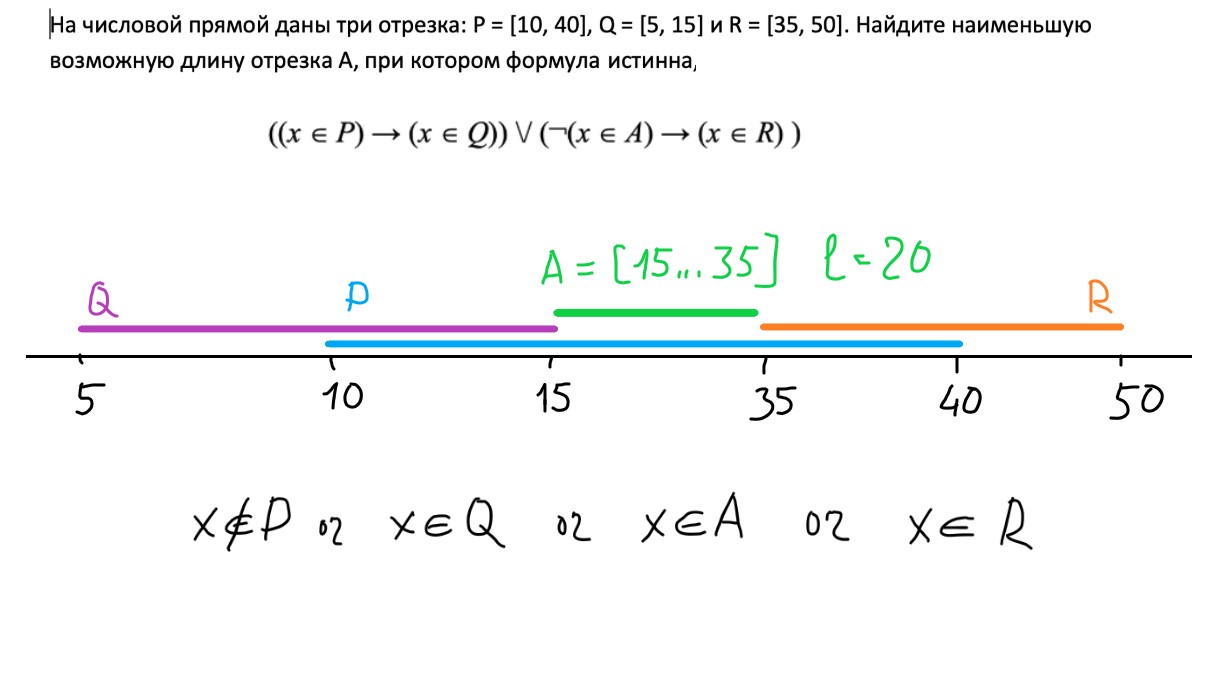 На числовой прямой даны три отрезка: P = [10, 40], Q = [5, 15] и R = [35, 50]. Найдите наименьшую
возможную длину отрезка A, при котором формула истинна,
((x ∈ P) → (x ∈ Q)) \/ (¬(x ∈ A) → (x ∈ R) )
A = [15... 35] l = 20
Q P R
5 10 15 35 40 50
x∉P or x∈Q or x∈A or x∈R